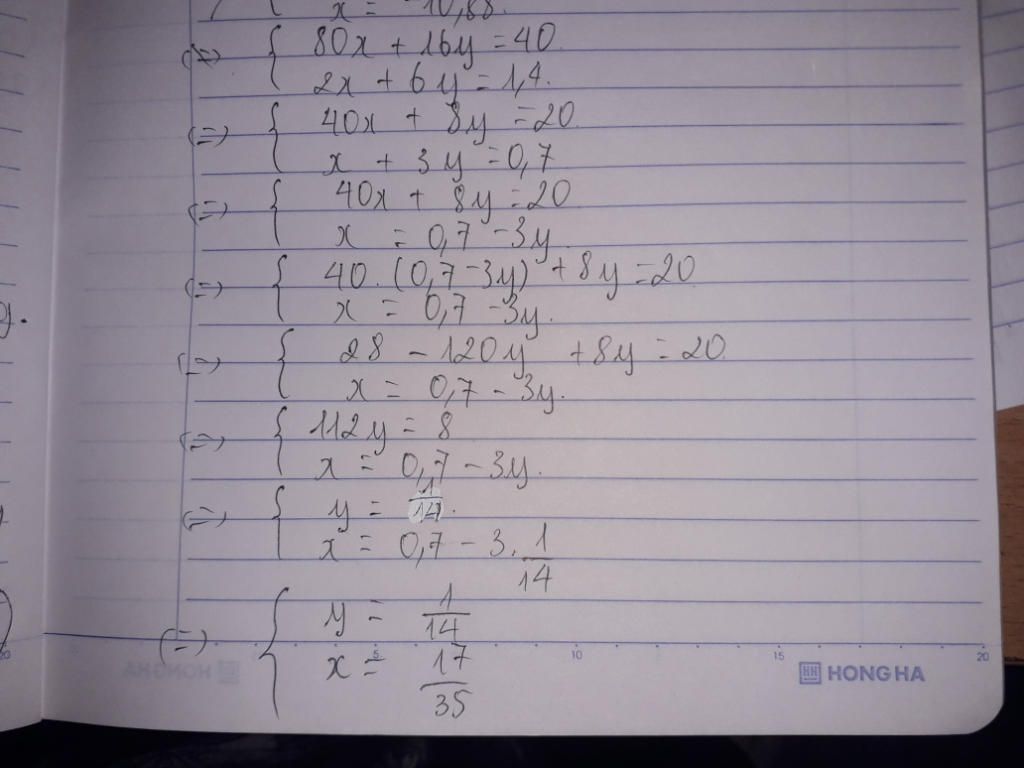 x = -10,88.
(=) { 80x + 16y = 40
2x + 6y = 1,4.
(=) { 40x + 8y = 20
x + 3y = 0,7
(=) { 40x + 8y = 20
x = 0,7 - 3y
(=) { 40. (0,7 - 3y) + 8y = 20
x = 0,7 - 3y.
(=) { 28 - 120y + 8y = 20
x = 0,7 - 3y.
(=) { 112y = 8
x = 0,7 - 3y.
(=) { y = 1/14.
x = 0,7 - 3. 1/14
(=) { y = 1/14
x = 17/35
5 10 15 20
HONG HA